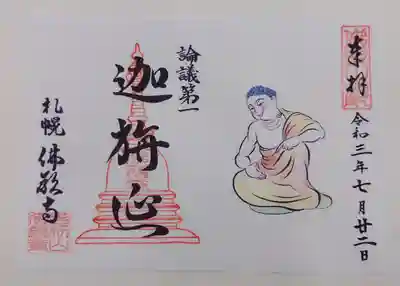 奉拝
令和三年七月廿二日
論議第一
迦旃延
札幌 佛願寺